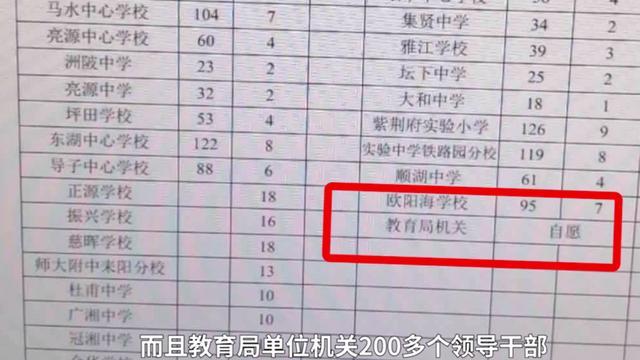 马水中心学校 104 7
亮源中心学校 60 4
洲陂中学 23 2
亮源中学 32 2
坪田学校 53 4
东湖中心学校 122 8
导子中心学校 88 6
正源学校 18
振兴学校 16
慈晖学校 18
师大附中耒阳分校 13
杜甫中学 10
广湘中学 10
冠湘中学
集贤中学 34 2
雅江学校 39 3
坛下中学 25 2
大和中学 18 1
紫荆府实验小学 126 9
实验中学铁路园分校 119 8
顺湖中学 61 4
欧阳海学校 95 7
教育局机关 自愿
而且教育局单位机关200多个领导干部